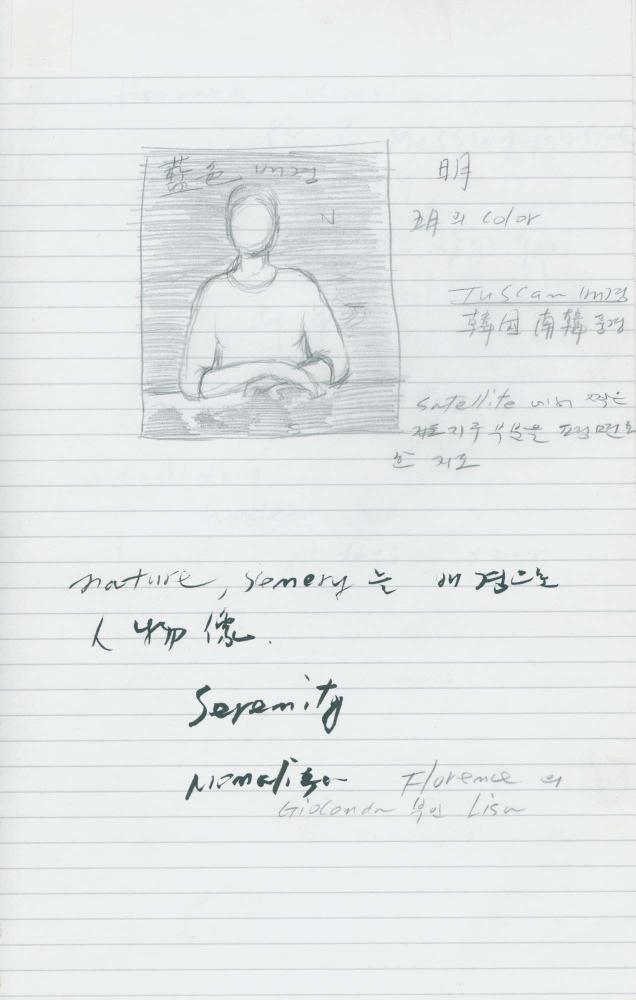 藍色 배경
N
明
五月의 color
Tuscan 배경
韓国 南韓 풍경
satellite 에서 찍은
지구 부분을
한 지도
nature, senery 는 배경으로
人物像.
Serenity
Monalisa Florence의
Gioconda 부인 Lisa